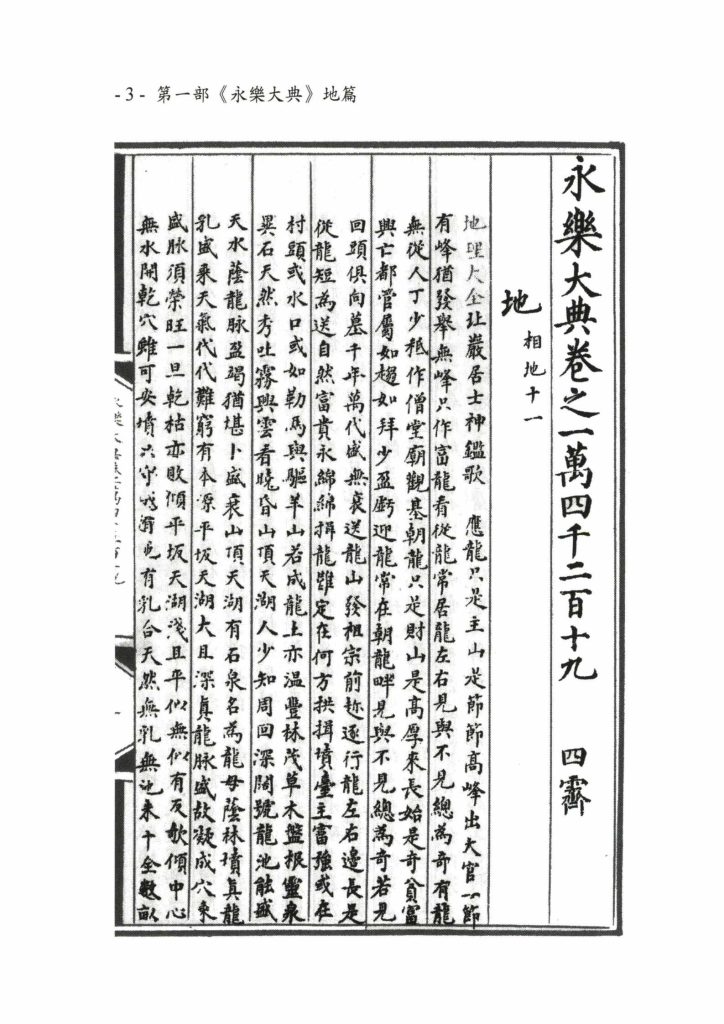 - 3 - 第一部《永樂大典》地篇
永樂大典卷之一萬四千二百十九 四霽
地 相地十一
地理大全玭巖居士神鑑歌 應龍只是主山是節節高峰出大官一節
有峰猶發舉無峰只作富龍看從龍常居龍左右見與不見總為奇有龍
無從人丁少秪作僧堂廟觀基朝龍只是財山是高厚來長始是奇貧富
興亡都管屬如趨如拜少盈虧迎龍常在朝龍畔見與不見總為奇若見
回頭俱向墓千年萬代盛無衰送龍山發祖宗前趂逐行龍左右邊長是
從龍短為送自然富貴永綿綿揖龍雖定在何方拱揖墳臺主富強或在
村頭或水口或如勒馬與驅羊山若成龍上亦溫豐林茂草木盤根靈泉
異石天然秀吐霧興雲看曉昏山頂天湖人少知周回深闊號龍池能盛
天水蔭龍脉盈竭猶堪卜盛衰山頂天湖有石泉名為龍母蔭林墳真龍
乳盛乘天氣代代難窮有本源平坂天湖大且深真龍脉盛故凝成穴乘
盛脉須榮旺一旦乾枯亦敗傾平坂天湖淺且平似無似有反欹傾中心
無水開乾穴雖可安墳只守 也有乳合天然無乳無池來十全數畝